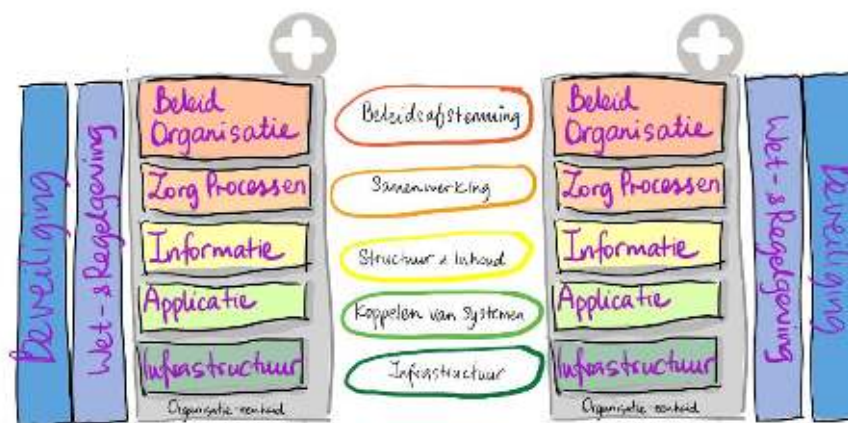 Beveiliging
Wet- & Regelgeving
Beleid
Organisatie
Zorg Processen
Informatie
Applicatie
Infrastructuur
Organisatie-eenheid
Beleidsafstemming
Samenwerking
Structuur & Inhoud
Koppelen van Systemen
Infrastructuur
Beleid
Organisatie
Zorg Processen
Informatie
Applicatie
Infrastructuur
Organisatie-eenheid
Wet- & Regelgeving
Beveiliging